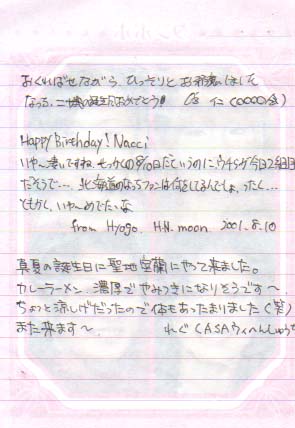 おくればせながら、ひっそりとお邪魔しました
なっち、二十歳の誕生日おめでとう！
Happy Birthday! Nacci
いや〜暑いですね。せっかくの8/10日だというのに、ウチらが今日2組目
だそうで…、北海道のなっちファンは何をしてるんでしょ、ったく…
ともかく、いや〜めでたいな
from Hyogo. H.N. moon 2001.8.10
真夏の誕生日に聖地室蘭にやって来ました。
カレーラーメン、濃厚でやみつきになりそうです〜
ちょっと涼しげだったので体もあったまりました(笑)
また来ます〜 れぐ(ASAウィへんしゅう